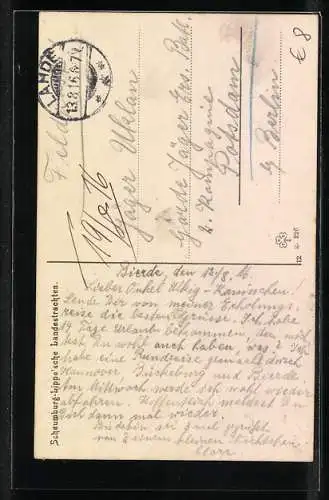 LAHDE
13.8.16.6-7
€ 8
Feld
19/8 16
Jäger Uhlan
Garde Jäger Ers. Batl.
2. Kompagnie
Potsdam
b/ Berlin
12 6 226
Schaumburg-Lippe'sche Landestrachten.
Bierde, den 12/8. 16.
Lieber Onkel
Sende Dir von meiner Erholungs-
reise die besten Grüße. Ich habe
14 Tage Urlaub bekommen, den
Du wohl auch haben
habe eine Rundreise gemacht durch
Hannover, Bückeburg und Bierde.
Am Mittwoch werde ich wohl wieder
abfahren. Hoffentlich meldest
Dich dann mal wieder.
Bis dahin sei gegrüßt
von Deinem kleinen